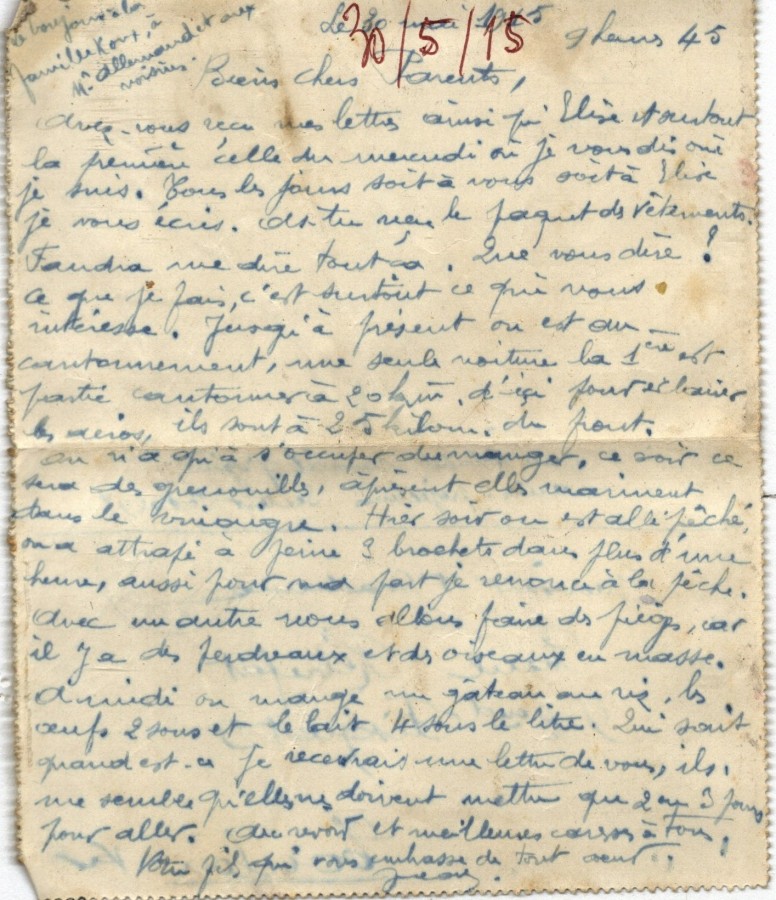 le bonjour à la
famille Roux, à
Mr Allemand et aux
voisins.
Le 30 mai 1915
30/5/15
9 heures 45
Biens chers Parents,
Avez-vous recu mes lettres ainsi qu' Elise et surtout
la première celle du mercredi où je vous dis où
je suis. Tous les jours soit à vous soit à Elise
je vous écris. As-tu reçu le paquet de vêtements.
Faudra me dire tout ça. Que vous dire ?
Ce que je fais, c'est surtout ce qui vous
intéresse. Jusqu'à présent on est au
cantonnement, une seule voiture la 1ère est
partie cantonner à 20 km. d'ici pour éclairer
les aéros, ils sont à 25 kilom. du front.
On n'a qu'à s'occuper du manger, ce soir ce
sera des grenouilles, àprésent elles marinent
dans le vinaigre. Hier soir on est allé pêché,
on a attrapé à peine 3 brochets dans plus d'une
heure, aussi pour ma part je renonce à la pêche.
Avec un autre nous allons faire des pièges, car
il y a des perdreaux et des oiseaux en masse.
A midi on mange un gâteau au riz, les
oeufs 2 sous et le lait 4 sous le litre. Qui sait
quand est-ce je recevrais une lettre de vous, il
me semble qu'elles ne doivent mettre que 2 ou 3 jours
pour aller. Au revoir et meilleures caresses à tous,
Votre fils qui vous embrasse de tout coeur.